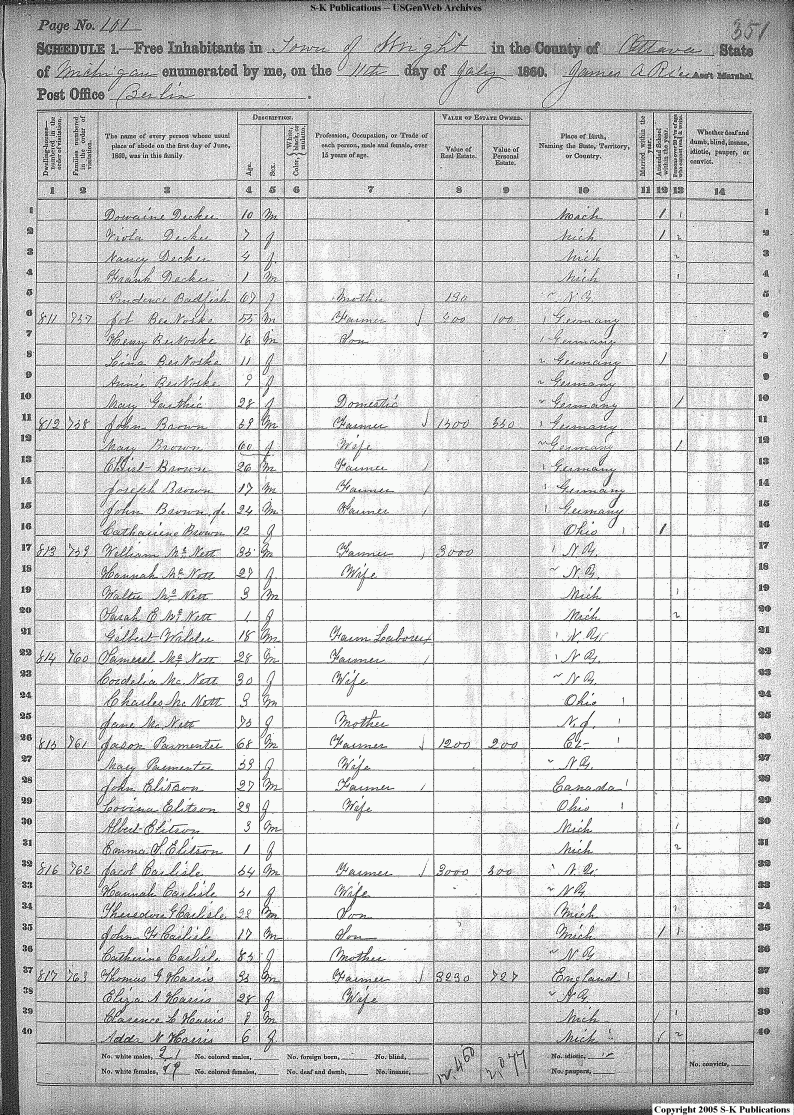 S-K Publications – USGenWeb Archives
Page No. 101
351
SCHEDULE 1.—Free Inhabitants in Town of Wright in the County of Ottawa State
of Michigan enumerated by me, on the 11th day of July 1860. James A Rice Ass't Marshal.
Post Office Berlin
Dwelling-houses numbered in the order of visitation. Families numbered in the order of visitation. The name of every person whose usual place of abode on the first day of June, 1860, was in this family. DESCRIPTION. Age. Sex. Color, White, black, or mulatto. Profession, Occupation, or Trade of each person, male and female, over 15 years of age. VALUE OF ESTATE OWNED. Value of Real Estate. Value of Personal Estate. Place of Birth, Naming the State, Territory, or Country. Married within the year. Attended School within the year. Whether deaf and dumb, blind, insane, idiotic, pauper, or convict.
1 2 3 4 5 6 7 8 9 10 11 12 13 14
1 Dowaine Decker 10 m Mich 1 1
2 Viola Decker 7 f Mich 1 2 2
3 Nancy Decker 4 f Mich 2 3
4 Frank Decker 1 m Mich 1 4
5 Prudence 67 f Mother 190 " N.Y. 5
6 811 757 55 m Farmer 400 100 Germany 6
7 Henry 16 m Son Germany 7
8 Lina 11 f " Germany 1 8
9 Annie 9 f " Germany 9
10 Mary 28 f Domestic " Germany 1 10
11 812 758 John Brown 59 m Farmer 1500 550 Germany 11
12 Mary Brown 60 f Wife " Germany 1 12
13 Christ Brown 26 m Farmer Germany 13
14 Joseph Brown 17 m Farmer Germany 14
15 John Brown, Jr. 24 m Farmer Germany 15
16 Catharine Brown 12 f Ohio 1 16
17 813 759 William McNett 35 m Farmer 3000 N.Y. 17
18 Hannah McNett 27 f Wife " N.Y. 18
19 Walter McNett 3 m Mich 1 19
20 Sarah E McNett 1 f Mich 2 20
21 Galbert Wilder 18 m Farm Laborer N.Y. 21
22 814 760 McNett 28 m Farmer N.Y. 22
23 Cordelia McNett 30 f Wife " N.Y. 23
24 Charles McNett 3 m Ohio 24
25 Jane McNett 73 f Mother N.J. 25
26 815 761 Jason Parmenter 68 m Farmer 1200 200 26
27 Mary Parmenter 59 f Wife " N.Y. 27
28 John Elitson 27 m Farmer Canada 28
29 Lovina Elitson 23 f Wife Ohio 29
30 Albert Elitson 3 m Mich 1 30
31 Emma S. Elitson 1 f Mich 2 31
32 816 762 Jacob Carlisle 54 m Farmer 3000 500 N.Y. 32
33 Hannah Carlisle 51 f Wife " N.Y. 33
34 Carlisle m Son Mich 1 34
35 John F Carlisle 17 m Son Mich 1 1 35
36 Catherine Carlisle 83 f Mother " N.Y. 36
37 817 763 Thomas G Harris 35 m Farmer 3230 727 England 37
38 Eliza A Harris 28 f Wife " N.Y. 38
39 Clarence L Harris 8 m Mich 1 1 39
40 Adda N Harris 6 f Mich 1 2 40
No. white males, 21 No. colored males, No. foreign born, No. blind, 12,460 2,077 No. idiotic,
No. white females, 19 No. colored females, No. deaf and dumb, No. insane, No. paupers, No. convicts,
Copyright 2005 S-K Publications